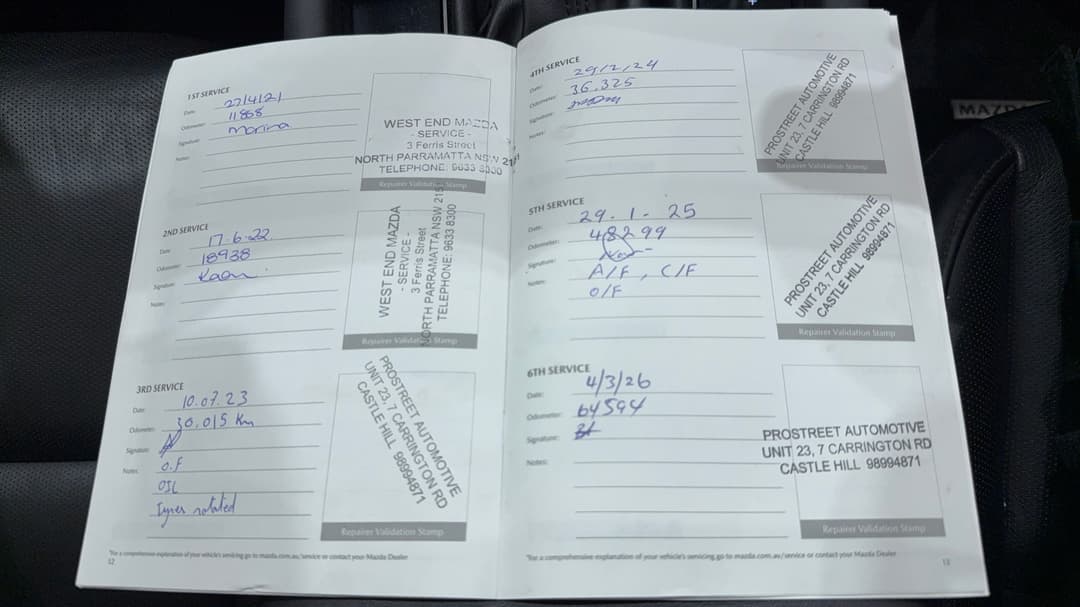 1ST SERVICE
Date: 27/4/21
Odometer: 11868
Signature: Marina
Notes:
WEST END MAZDA
- SERVICE -
3 Ferris Street
NORTH PARRAMATTA NSW 21
TELEPHONE: 9633 8300
Repairer Validation Stamp
2ND SERVICE
Date: 17.6.22
Odometer: 18938
Signature: Kaon
Notes:
WEST END MAZDA
- SERVICE -
3 Ferris Street
NORTH PARRAMATTA NSW 215
TELEPHONE: 9633 8300
Repairer Validation Stamp
3RD SERVICE
Date: 10.07.23
Odometer: 30,015 Km
Signature:
Notes: O.F
OIL
Tyres rotated
PROSTREET AUTOMOTIVE
UNIT 23, 7 CARRINGTON RD
CASTLE HILL 98994871
Repairer Validation Stamp
*For a comprehensive explanation of your vehicle's servicing go to mazda.com.au/service or contact your Mazda Dealer
12
4TH SERVICE
Date: 29/2/24
Odometer: 36.325
Signature:
Notes:
PROSTREET AUTOMOTIVE
UNIT 23, 7 CARRINGTON RD
CASTLE HILL 98994871
Repairer Validation Stamp
5TH SERVICE
Date: 29.1.25
Odometer: 48299
Signature:
Notes: A/F, C/F
O/F
PROSTREET AUTOMOTIVE
UNIT 23, 7 CARRINGTON RD
CASTLE HILL 98994871
Repairer Validation Stamp
6TH SERVICE
Date: 4/3/26
Odometer: 64594
Signature:
Notes:
PROSTREET AUTOMOTIVE
UNIT 23, 7 CARRINGTON RD
CASTLE HILL 98994871
Repairer Validation Stamp
*For a comprehensive explanation of your vehicle's servicing go to mazda.com.au/service or contact your Mazda Dealer
13